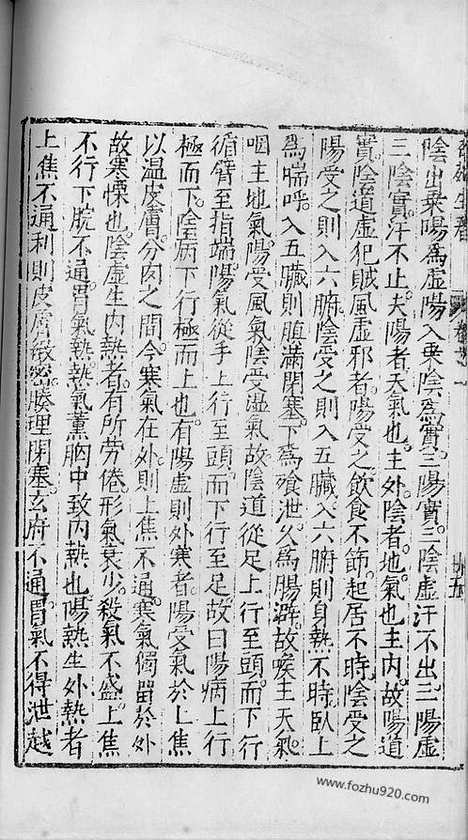 陰出乗陽為虛陽入乗陰為實三陽實三陰虛汗不出三陽虛
三陰實汗不止夫陽者天氣也主外陰者地氣也主内故陽道
實陰道虛犯賊風虛邪者陽受之飲食不節起居不時陰受之
陽受之則入六腑陰受之則入五臟入六腑則身熱不時臥上
為喘呼入五臟則䐜滿閉塞下為飱泄久為腸澼故喉主天氣
咽主地氣陽受風氣陰受湿氣故陰道從足上行至頭而下行
循臂至指端陽氣從手上行至頭而下行至足故曰陽病上行
極而下陰病下行極而上也有陽虛則外寒者陽受氣於上焦
以温皮膚分肉之間今寒氣在外則上焦不通寒氣獨留於外
故寒慄也陰虛生内熱者有所労倦形氣衰少穀氣不盛上焦
不行下脘不通胃氣熱熱氣薰胸中致内熱也陽熱生外熱者
上焦不通利則皮膚緻密腠理閉塞玄府不通胃氣不得泄越
www.fozhu920.com